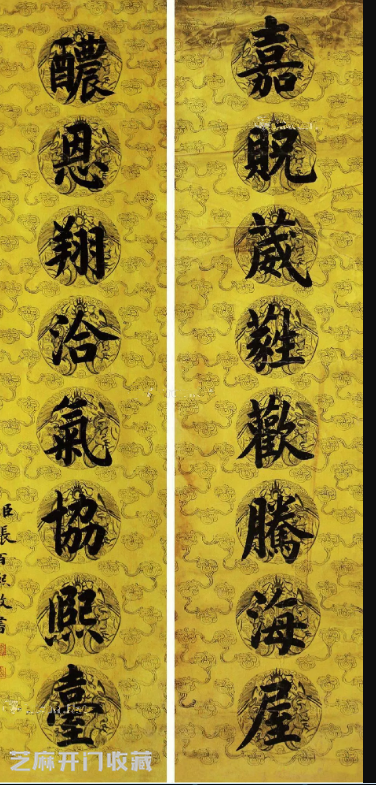 嘉貺葳蕤歡騰海屋
醲恩翔洽氣協熙臺
臣張百熙敬書
芝麻开门收藏